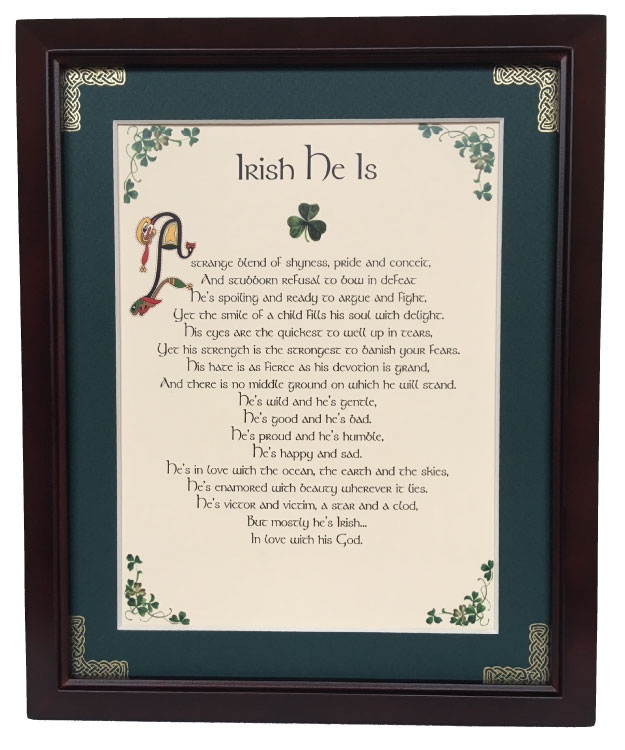 Irish He Is
A strange blend of shyness, pride and conceit,
And stubborn refusal to bow in defeat
He's spoiling and ready to argue and fight,
Yet the smile of a child fills his soul with delight.
His eyes are the quickest to well up in tears,
Yet his strength is the strongest to banish your fears.
His hate is as fierce as his devotion is grand,
And there is no middle ground on which he will stand.
He's wild and he's gentle,
He's good and he's bad.
He's proud and he's humble,
He's happy and sad.
He's in love with the ocean, the earth and the skies,
He's enamored with beauty wherever it lies.
He's victor and victim, a star and a clod,
But mostly he's Irish...
In love with his God.